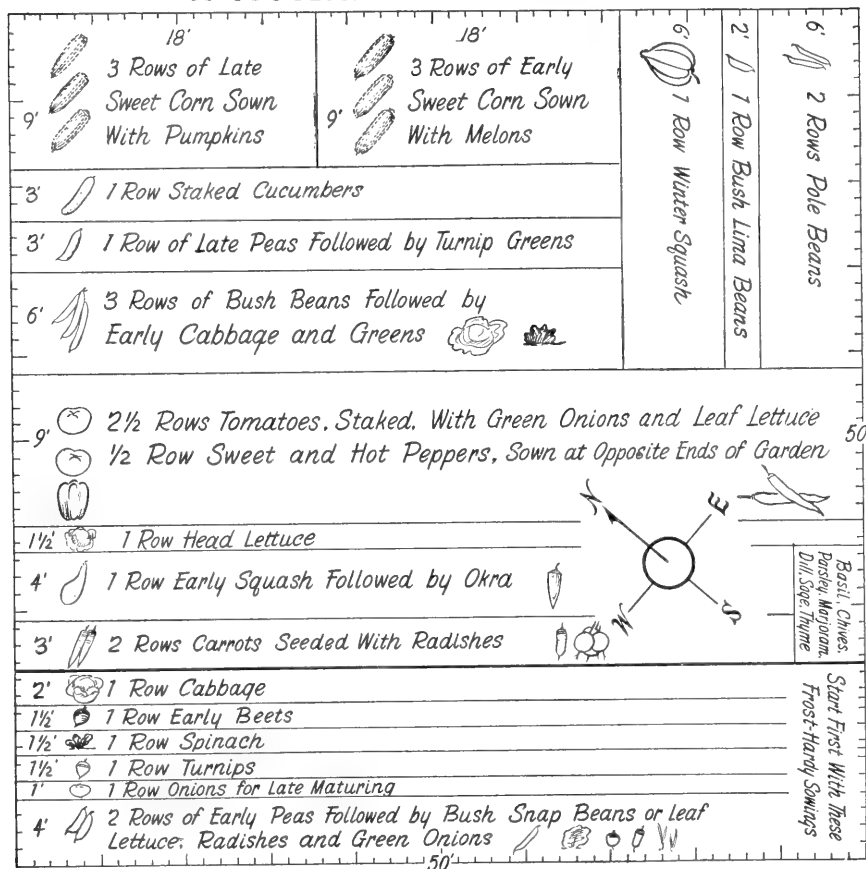 18'
9'
3 Rows of Late
Sweet Corn Sown
With Pumpkins
18'
9'
3 Rows of Early
Sweet Corn Sown
With Melons
6'
1 Row Winter Squash
2'
1 Row Bush Lima Beans
6'
2 Rows Pole Beans
3' 1 Row Staked Cucumbers
3' 1 Row of Late Peas Followed by Turnip Greens
6' 3 Rows of Bush Beans Followed by
Early Cabbage and Greens
9'
2½ Rows Tomatoes, Staked. With Green Onions and Leaf Lettuce
½ Row Sweet and Hot Peppers, Sown at Opposite Ends of Garden
50'
1½' 1 Row Head Lettuce
4' 1 Row Early Squash Followed by Okra
3' 2 Rows Carrots Seeded With Radishes
N
E
W
S
Basil, Chives,
Parsley, Marjoram,
Dill, Sage, Thyme
2' 1 Row Cabbage
1½' 1 Row Early Beets
1½' 1 Row Spinach
1½' 1 Row Turnips
1' 1 Row Onions for Late Maturing
4' 2 Rows of Early Peas Followed by Bush Snap Beans or leaf
Lettuce, Radishes and Green Onions
Start First With These
Frost-Hardy Sowings
50'